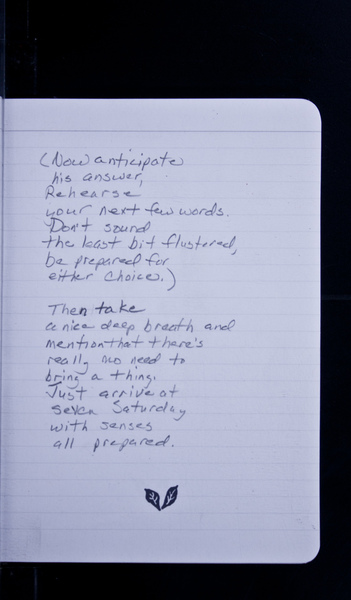 (Now anticipate
his answer,
Rehearse
your next few words.
Don't sound
the least bit flustered,
be prepared for
either choice.)
Then take
a nice deep breath and
mention that there's
really no need to
bring a thing.
Just arrive at
seven Saturday
with senses
all prepared.